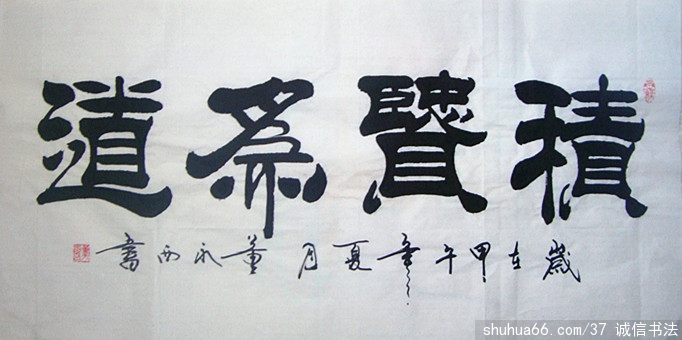 積賢為道
歲在甲午年夏月董永西書
shuhua66.com/37 诚信书法